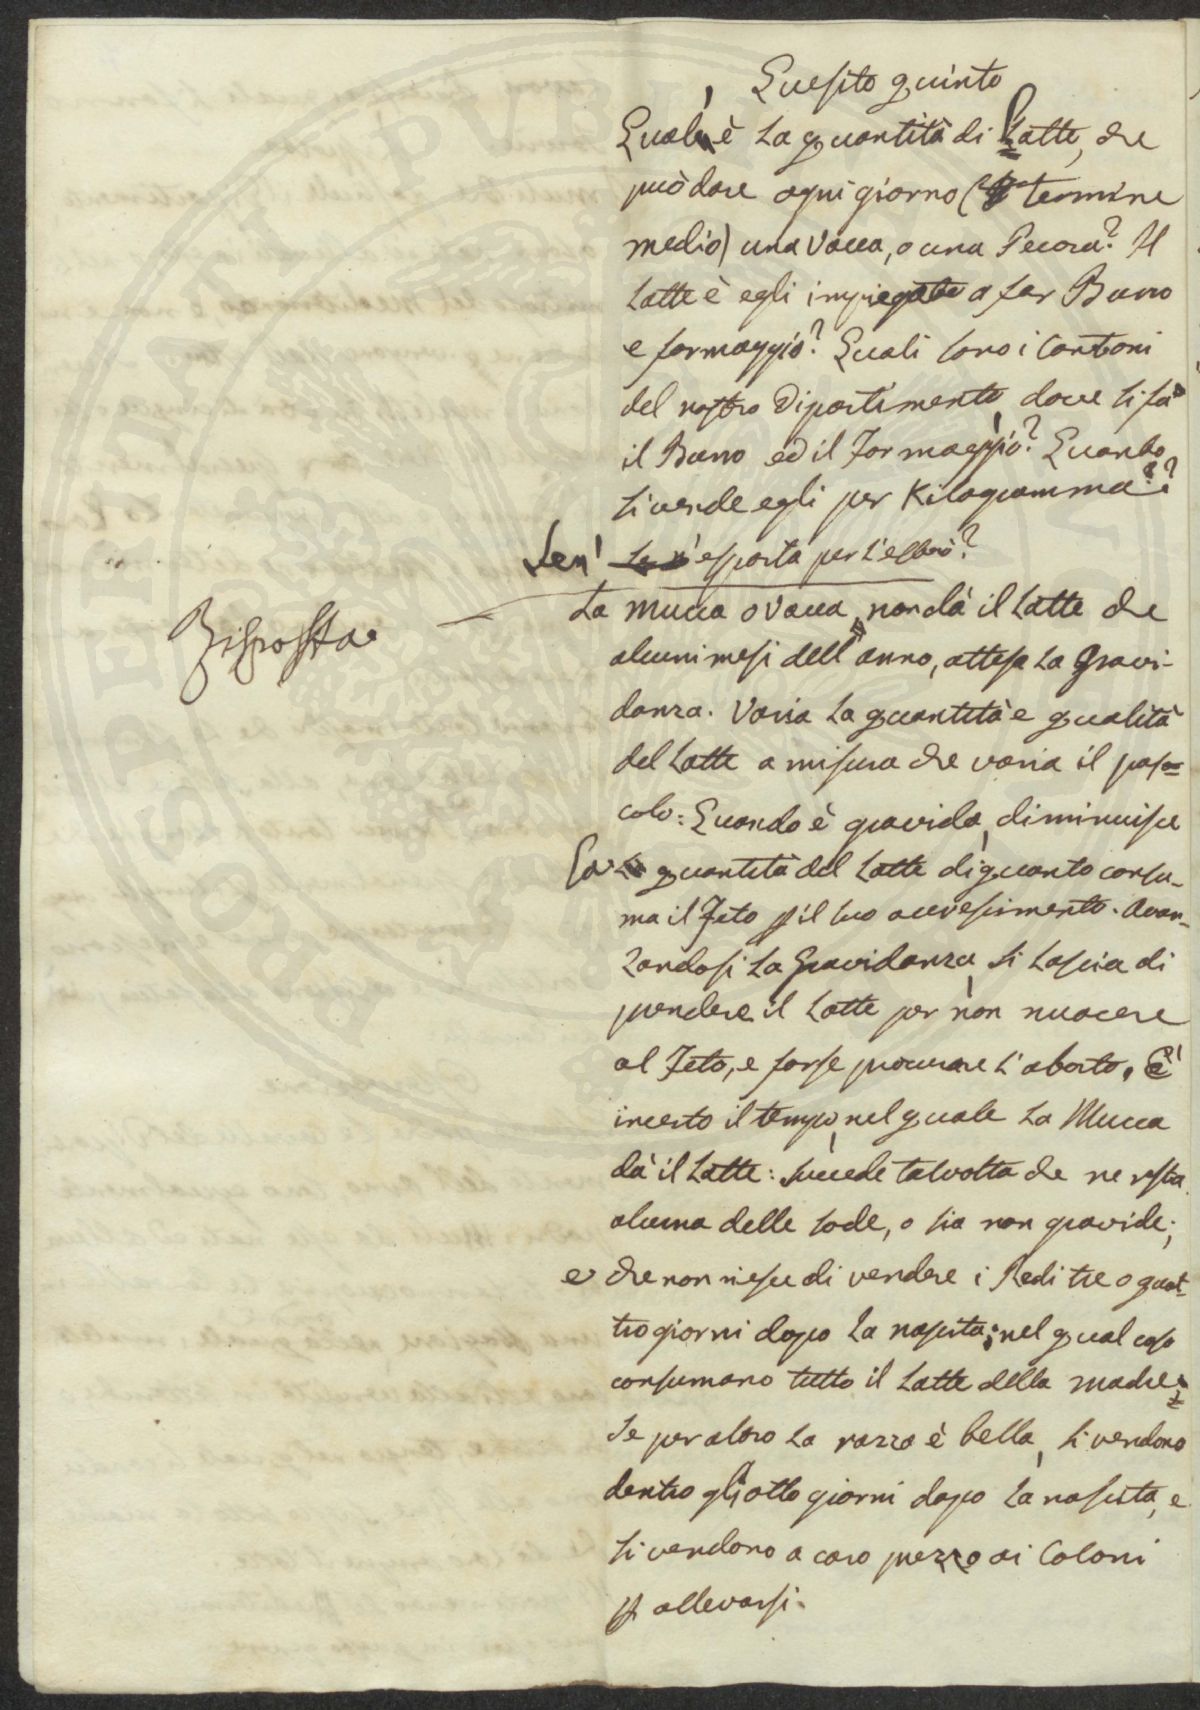 Quesito quinto
Qual è la quantità di Latte, che
può dare ogni giorno (termine
medio) una Vacca, o una Pecora? Il
Latte è egli impiegato a far Burro
e formaggio? Quali sono i Cantoni
del nostro Dipartimento, dove si fà
il Burro ed il Formaggio? Quanto
si vende egli per Kilogramma?
Sen' esporta per l'estero?
Risposta
La Mucca o Vacca, non dà il Latte che
alcuni mesi dell'anno, attesa la Gravi-
danza. Varia la quantità e qualità
del Latte a misura che varia il pas=
colo: Quando è gravida, diminuisce
la quantità del Latte di quanto consu-
ma il Feto p il suo accrescimento. Avan-
zandosi la Gravidanza, si lascia di
prendere il Latte per non nuocere
al Feto, e forse procurare l'aborto. È
incerto il tempo, nel quale la Mucca
dà il Latte: succede talvolta che ne resta
alcuna delle sode, o sia non gravide;
e che non riesce di vendere i Redi tre o quat-
tro giorni dopo la nascita; nel qual caso
consumano tutto il Latte della madre;
Se per altro la razza è bella, si vendono
dentro gli otto giorni dopo la nascita, e
si vendono a caro prezzo ai Coloni
p allevarsi.